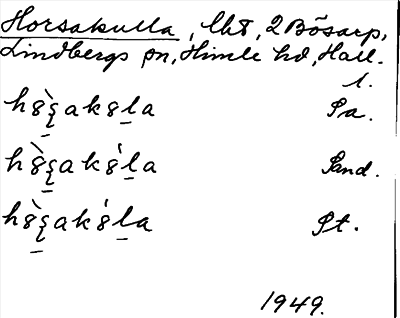 Horsakulla, lht, 2 Bösarp,
Lindbergs sn, Himle hd, Hall.
l.
h8̀ʂ̱aks8ḻa Pa.
h8̀ʂ̱ak8́ḻa Sand.
h8̀ʂ̱ak8́ḻa Pt.
1949.